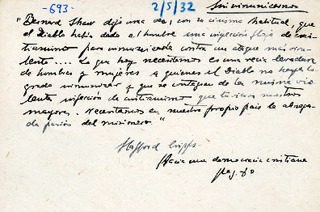 -693-
2/5/32
"Bernard Shaw dijo una vez, con su cinismo habitual, que
el Diablo había dado al hombre una inyección floja de cris-
tianismo para inmunizarle contra un ataque más viru-
lento.... Lo que hoy necesitamos es una recia levadura
de hombres y mujeres a quienes el Diablo no haya lo-
grado inmunizar y que se contagien de la misma vio-
lenta infección de cristianismo que tuvieron nuestros
mayores. Necesitamos en nuestro propio país la abrasa-
da pasión del misionero."
Stafford Cripps
Hacia una democracia cristiana
pág. 60